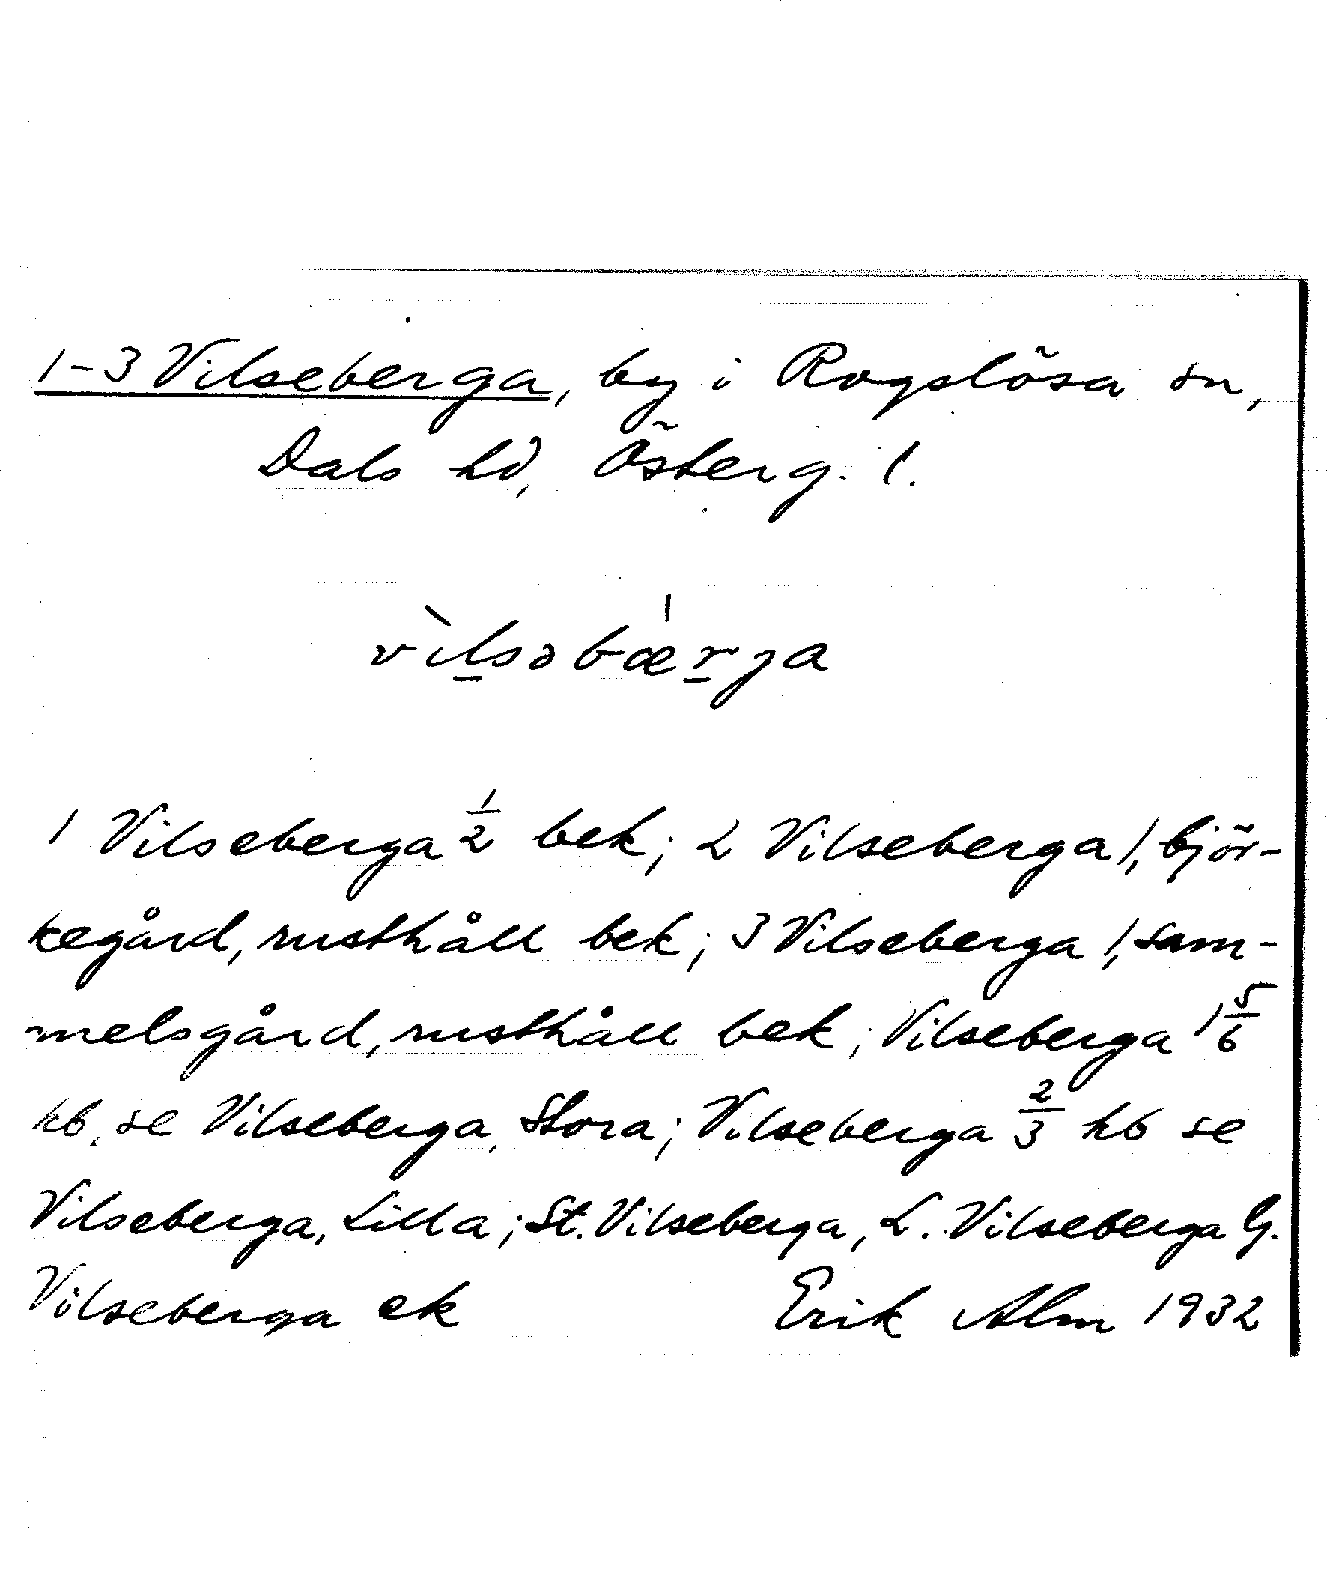 1-3 Vilseberga, by i Rogslösa sn,
Dals hd, Österg. l.
vìlsəbæ̍rja
1 Vilseberga ½ bek; 2 Vilseberga 1, björ-
kegård, rusthåll bek; 3 Vilseberga 1, sam-
melsgård, rusthåll bek; Vilseberga 1 5/6
hb, se Vilseberga, Stora; Vilseberga 2/3 hb se
Vilseberga, Lilla; St. Vilseberga, L. Vilseberga G.
Vilseberga ek Erik Alm 1932